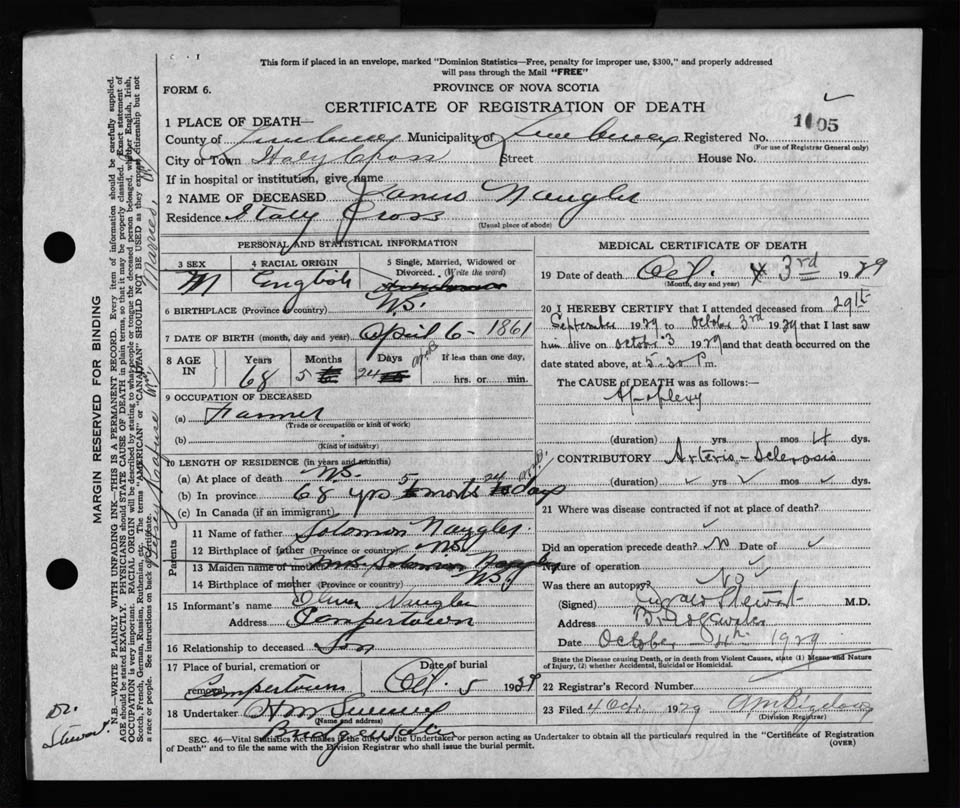 This form if placed in an envelope, marked "Dominion Statistics—Free, penalty for improper use, $300," and properly addressed
will pass through the Mail "FREE"
FORM 6.
PROVINCE OF NOVA SCOTIA
CERTIFICATE OF REGISTRATION OF DEATH
1 PLACE OF DEATH—
County of Lunenburg Municipality of Lunenburg Registered No. 1605
(For use of Registrar General only)
City or Town Italy Cross Street House No.
If in hospital or institution, give name
2 NAME OF DECEASED Naugler
Residence Italy Cross
(Usual place of abode)
PERSONAL AND STATISTICAL INFORMATION
3 SEX
M
4 RACIAL ORIGIN
English
5 Single, Married, Widowed or Divorced. (Write the word)
6 BIRTHPLACE (Province or country) N.S.
7 DATE OF BIRTH (month, day and year) April 6 - 1861
8 AGE IN
Years 68
Months 5
Days 24
If less than one day,
hrs. or min.
9 OCCUPATION OF DECEASED
(a) Farmer
(Trade or occupation or kind of work)
(b)
(Kind of industry)
10 LENGTH OF RESIDENCE (in years and months)
(a) At place of death N.S.
(b) In province 68 yrs 5 months 24 days
(c) In Canada (if an immigrant)
Parents
11 Name of father Solomon Naugler
12 Birthplace of father (Province or country) N.S.
13 Maiden name of mother Mrs Solomon Naugler
14 Birthplace of mother (Province or country) N.S.
15 Informant's name Oliver Naugler
Address Camperdown
16 Relationship to deceased Son
17 Place of burial, cremation or removal Camperdown
Date of burial Oct. 5 1929
18 Undertaker
(Name and address)
Bridgewater
MEDICAL CERTIFICATE OF DEATH
19 Date of death Oct. 3rd 1929
(Month, day and year)
20 I HEREBY CERTIFY that I attended deceased from 29th
September 1929 to October 3rd 1929 that I last saw
him alive on October 3 1929 and that death occurred on
date stated above, at 5.30 P m.
The CAUSE of DEATH was as follows:—
Apoplexy
(duration) yrs mos 4 dys.
CONTRIBUTORY Arterio-Sclerosis
(duration) yrs mos dys.
21 Where was disease contracted if not at place of death?
Did an operation precede death? No Date of
Nature of operation
Was there an autopsy No
(Signed) Stewart M.D.
Address Bridgewater
Date October 4th 1929
State the Disease Causing Death, or in death from Violent Causes, state (1) Means and Nature
of Injury, (2) whether Accidental, Suicidal or Homicidal.
22 Registrar's Record Number
23 Filed 4 Oct. 1929
(Division Registrar)
SEC. 46—Vital Statistics Act makes it the duty of the Undertaker or person acting as Undertaker to obtain all the particulars required in the "Certificate of Registration
of Death" and to file the same with the Division Registrar who shall issue the burial permit.
(OVER)
MARGIN RESERVED FOR BINDING
N.B.—WRITE PLAINLY WITH UNFADING INK—THIS IS A PERMANENT RECORD. Every item of information should be carefully supplied.
AGE should be stated EXACTLY. PHYSICIANS should STATE CAUSE OF DEATH in plain terms, so that it may be properly classified. Exact statement of
OCCUPATION is very important. RACIAL ORIGIN will be described by stating to what people or tongue the deceased person belonged, whether English, Irish,
Scotch, French, German, Russian, Ruthenian, etc. The terms "AMERICAN" or "CANADIAN" SHOULD NOT BE USED as they express citizenship but not
a race or people. See instructions on back of certificate.
Dr.
Stewart